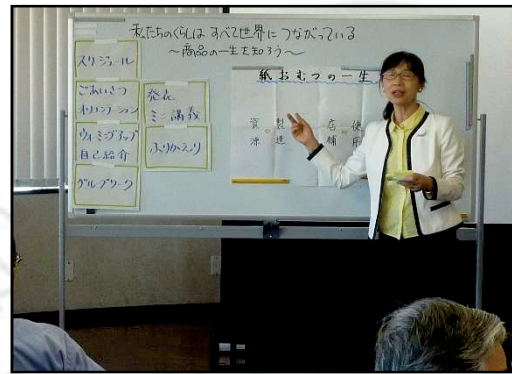 私たちのくらしは すべて世界に つながっている
～商品の一生を知ろう～
スケジュール
ごあいさつ
オリエンテーション
ウォーミングアップ
自己紹介
グループワーク
発表
ミニ講義
ふりかえり
紙おむつの一生
資源
製造
店舗
使用